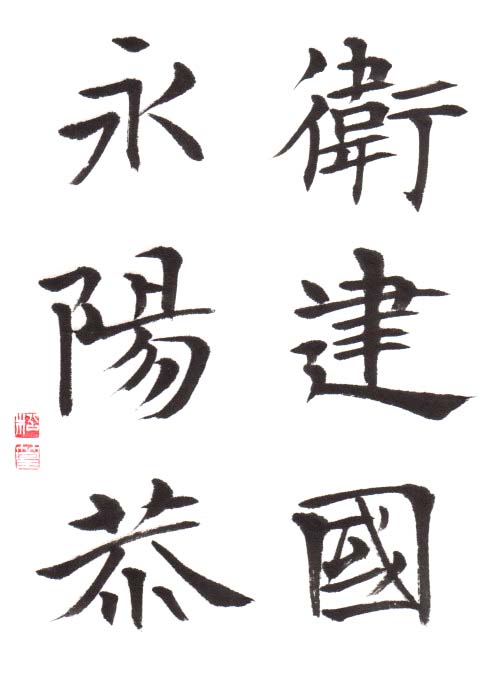 衛建國
永陽恭